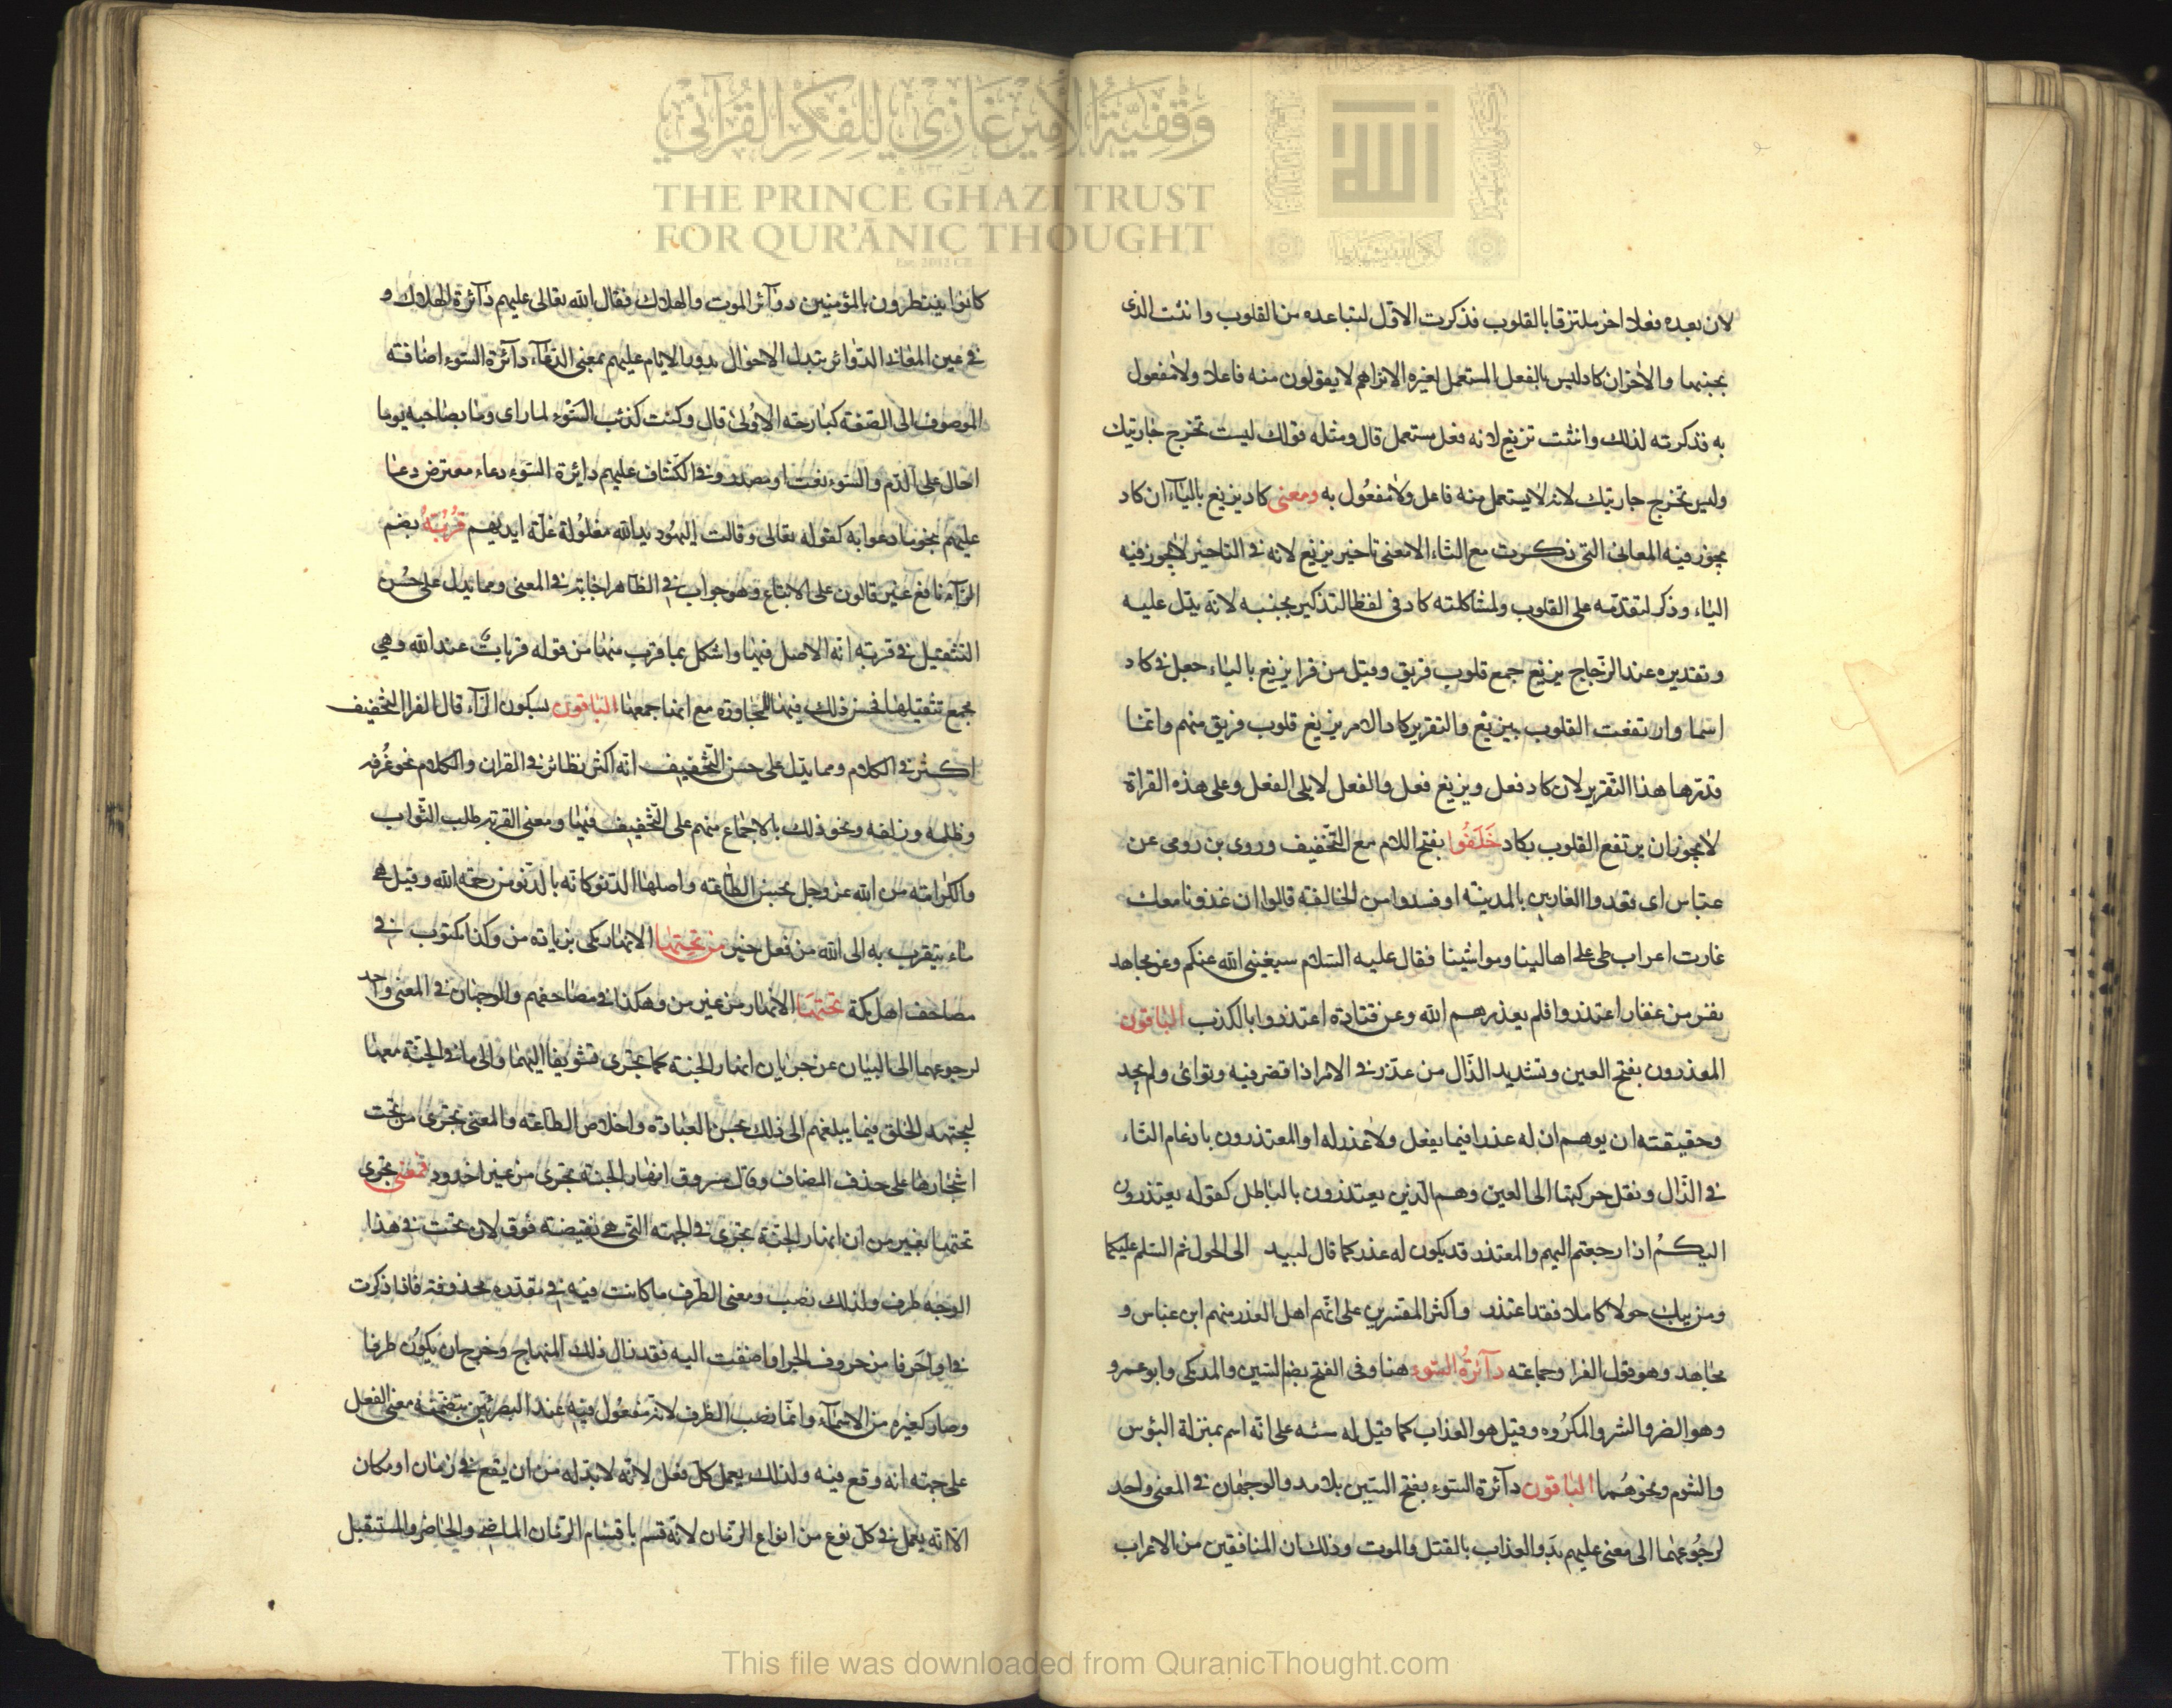 وقفية الأمير غازي للفكر القرآني
THE PRINCE GHAZI TRUST
FOR QUR'ĀNIC THOUGHT
لان بعده فعلا اخر ملتزقا بالقلوب فذكرت الاول لتباعده من القلوب وانثت الذى
بجنبها والاخران كاد ليس بالفعل المستعمل لغيره الا تراهم لا يقولون منه فاعلا ولا مفعول
به فذكرته لذلك وانثت تزيغ لانه فعل مستعمل قال ومثله قولك ليست تخرج جاريتك
وليس تخرج جاريتك لانه لا يستعمل منه فاعل ولا مفعول به ومعنى كاد يزيغ بالياء ان كاد
يجوز فيه المعانى التى ذكرت مع التاء الا معنى تاخير يزيغ لانه فى التاخير لا يجوز فيه
الياء وذكر لتقدمه على القلوب ولمشاكلته كاد فى لفظ التذكير بجنبه لانه يدل عليه
وتقديره عند الزجاج يزيغ جمع قلوب فريق وقيل من قرا يزيغ بالياء جعل فى كاد
اسما وارتفعت القلوب بيزيغ والتقدير كاد الامر يزيغ قلوب فريق منهم وانما
قدرها هذا التقدير لان كاد فعل ويزيغ فعل والفعل لا يلى الفعل وعلى هذه القراة
لا يجوز ان يرتفع القلوب بكاد خلفوا بفتح اللام مع التخفيف وروى بن رومى عن
عباس اى قعدوا الغازين بالمدينة او فسدوا من الخالفة قالوا ان غزونا معك
غارت اعراب طى على اهالينا ومواشينا فقال عليه السلام سيغنى الله عنكم وعن مجاهد
نفر من غفار اعتذروا فلم يعذرهم الله وعن قتادة اعتذروا بالكذب الباقون
المعذرون بفتح العين وتشديد الذال من عذر فى الامر اذا قصر فيه وتوانى ولم يجد
وحقيقته ان يوهم ان له عذرا فيما يفعل ولا عذر له او المعتذرون بادغام التاء
فى الذال ونقل حركتها الى العين وهم الذين يعتذرون بالباطل كقوله يعتذرون
اليكم اذا رجعتم اليهم والمعتذر قد يكون له عذر كما قال لبيد الى الحول ثم السلم عليكما
ومن يبك حولا كاملا فقد اعتذر واكثر المفسرين على انهم اهل العذر منهم ابن عباس و
مجاهد وهو قول الفرا وجماعة دآئرة السوء هنا وفى الفتح بضم السين والمد مكى وابو عمرو
وهو الضر والشر والمكروه وقيل هو العذاب كما قيل له سئة على انه اسم بمنزلة البؤس
والشوم ونحوهما الباقون دآئرة السوء بفتح السين بلا مد والوجهان فى المعنى واحد
لرجوعهما الى معنى عليهم يدو العذاب بالقتل والموت وذلك ان المنافقين من الاعراب
كانوا ينتظرون بالمؤمنين دوآئر الموت والهلاك فقال الله تعالى عليهم دآئرة الهلاك و
فى عين المعانى الدوائر تبدل الاحوال بدور الايام عليهم بمعنى الدعآء دآئرة السوء اضافته
الموصوف الى الصفة كبارحة الاولى قال وكنت كذئب السوء لما راى وما بصاحبه يوما
احال على الدم والسوء نعت او مصدر وفى الكشاف عليهم دايرة السوء دعاء معترض دعا
عليهم بنحو ما دعوا به كقوله تعالى وقالت اليهود يد الله مغلولة غلت ايديهم قربة بضم
الرآء نافع غير قالون على الاتباع وهو جواب فى الظاهر اخا به فى المعنى ومما يدل على حسن
التثقيل فى قربة انه الاصل فيها واشكل بما قرب منها من قوله قربات عند الله وهى
مجمع تثقيلها فحسن ذلك فيها للمجاورة مع انها جمعها الباقون بسكون الرآء قال الفرا التخفيف
اكثر فى الكلام ومما يدل على حسن التخفيف انه اكثر نظائر فى القران والكلام نحو غرفة
وظلمة وزلفة ونحو ذلك بالاجماع منهم على التخفيف فيها ومعنى القربة طلب الثواب
والكرامة من الله عز وجل بحسن الطاعة واصلها الدنو كانه بالدنو من رحمة الله وقيل هى
ماء يتقرب به الى الله من فعل خير من تحتها الانهار مكى بزيادة من وكذا مكتوب فى
مصاحف اهل مكة تحتها الانهار من غير من وهكذا فى مصاحفهم والوجهان فى المعنى واحد
لرجوعهما الى البيان عن جريان انهار الجنة كما تجرى تشويقا اليها والى ما فى الجنة معها
ليجتهد الخلق فيما يبلغهم الى ذلك بحسن العبادة واخلاص الطاعة والمعنى تجرى من تحت
اشجارها على حذف المضاف وقال مسروق انهار الجنة تجرى من غير اخدود فمعنى تجرى
تحتها بغير من ان انهار الجنة تجرى فى الجهة التى هى نقيضة فوق لان تحت فى هذا
الوجه ظرف ولذلك نصب ومعنى الظرف ما كانت فيه فى مقدرة محذوفة فاذا ذكرت
فى او حرفا من حروف الجر او اضفت اليه فقد زال ذلك المنهاج وخرج ان يكون ظرفا
وصار كغيره من الاسمآء وانما نصب الظرف لانه مفعول فيه عند البصريين بتضمنه معنى الفعل
على جهة انه وقع فيه ولذلك يعمل كل فعل لانه لا بد له من ان يقع فى زمان او مكان
الا انه يعمل فى كل نوع من انواع الزمان لانه قسم باقسام الزمان الماضى والحاضر والمستقبل
This file was downloaded from QuranicThought.com